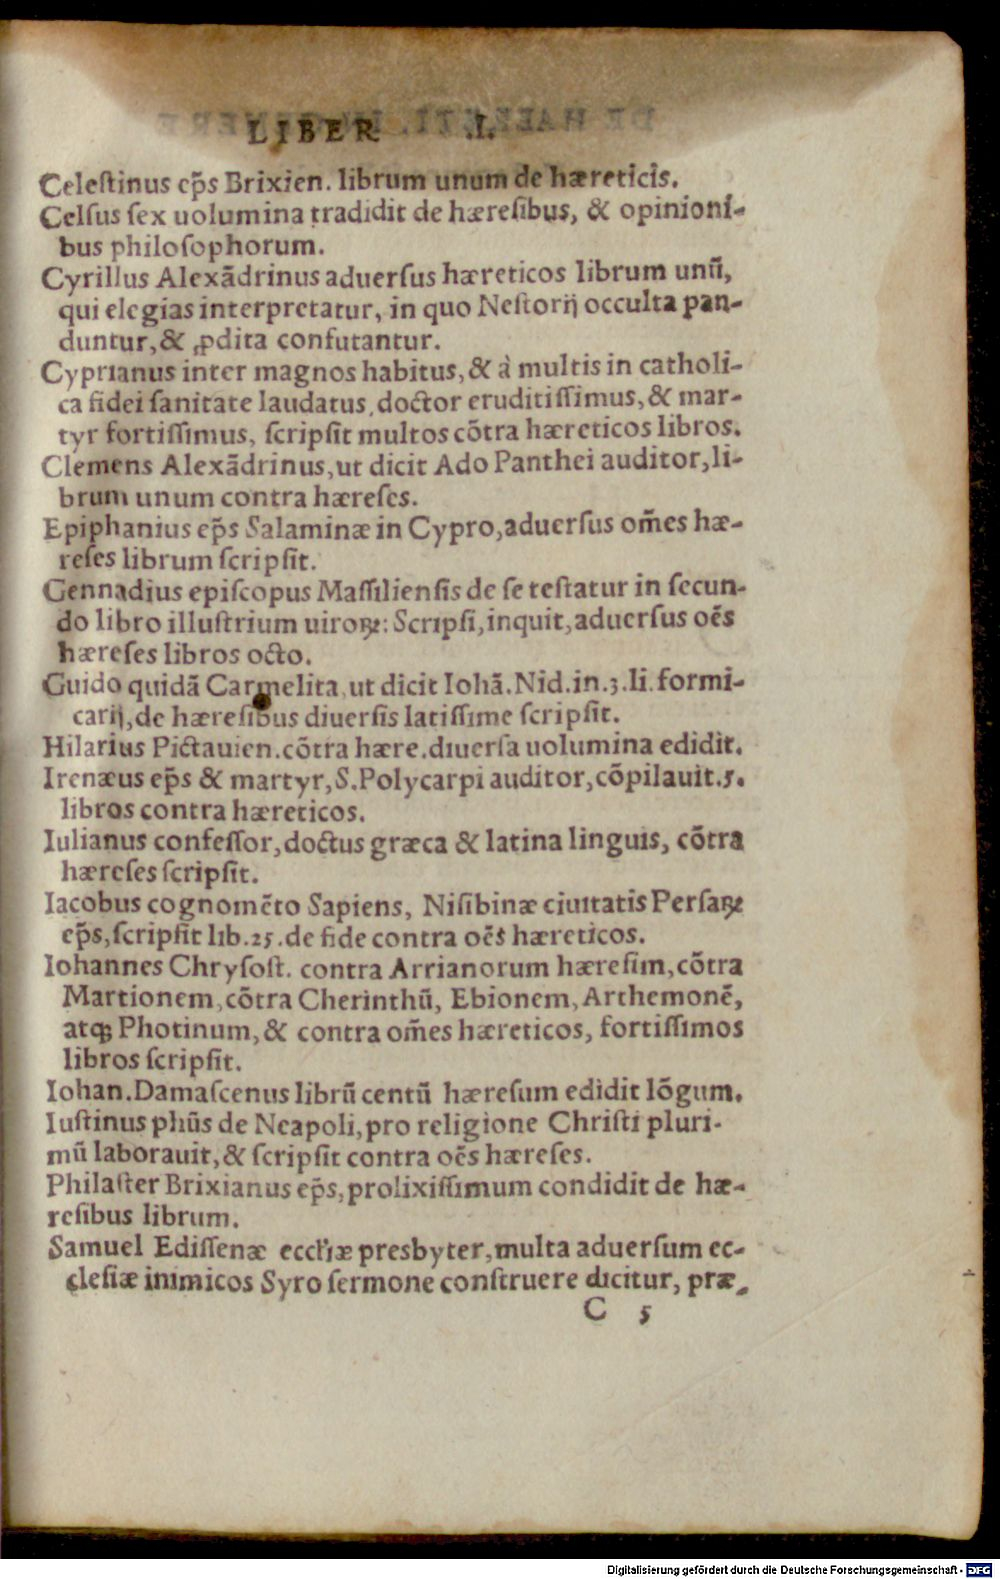 LIBER .I.
Celeſtinus ep̃s Brixien. librum unum de hæreticis.
Celſus ſex uolumina tradidit de hæreſibus, & opinioni-
bus philoſophorum.
Cyrillus Alexãdrinus aduerſus hæreticos librum unũ,
qui elegias interpretatur, in quo Neſtorij occulta pan-
duntur, & ꝓdita confutantur.
Cyprianus inter magnos habitus, & à multis in catholi-
ca fidei ſanitate laudatus, doctor eruditiſſimus, & mar-
tyr fortiſſimus, ſcripſit multos cõtra hæreticos libros.
Clemens Alexãdrinus, ut dicit Ado Panthei auditor, li-
brum unum contra hæreſes.
Epiphanius ep̃s Salaminæ in Cypro, aduerſus om̃es hæ-
reſes librum ſcripſit.
Gennadius epiſcopus Maſſilienſis de ſe teſtatur in ſecun-
do libro illuſtrium uiroꝝ: Scripſi, inquit, aduerſus oẽs
hæreſes libros octo.
Guido quidã Carmelita, ut dicit Iohã. Nid. in .3. li. formi-
carij, de hæreſibus diuerſis latiſſime ſcripſit.
Hilarius Pictauien. cõtra hære. diuerſa uolumina edidit.
Irenæus ep̃s & martyr, S. Polycarpi auditor, cõpilauit .5.
libros contra hæreticos.
Iulianus confeſſor, doctus græca & latina linguis, cõtra
hæreſes ſcripſit.
Iacobus cognomẽto Sapiens, Niſibinæ ciuitatis Perſaꝝ
ep̃s, ſcripſit lib. 25. de fide contra oẽs hæreticos.
Iohannes Chryſoſt. contra Arrianorum hæreſim, cõtra
Martionem, cõtra Cherinthũ, Ebionem, Arthemonẽ,
atqꝫ Photinum, & contra om̃es hæreticos, fortiſſimos
libros ſcripſit.
Iohan. Damaſcenus librũ centũ hæreſum edidit lõgum.
Iuſtinus phũs de Neapoli, pro religione Chriſti pluri-
mũ laborauit, & ſcripſit contra oẽs hæreſes.
Philaſter Brixianus ep̃s, prolixiſſimum condidit de hæ-
reſibus librum.
Samuel Ediſſenæ eccl̃iæ presbyter, multa aduerſum ec-
cleſiæ inimicos Syro ſermone conſtruere dicitur, præ-
C 5
Digitalisierung gefördert durch die Deutsche Forschungsgemeinschaft - DFG